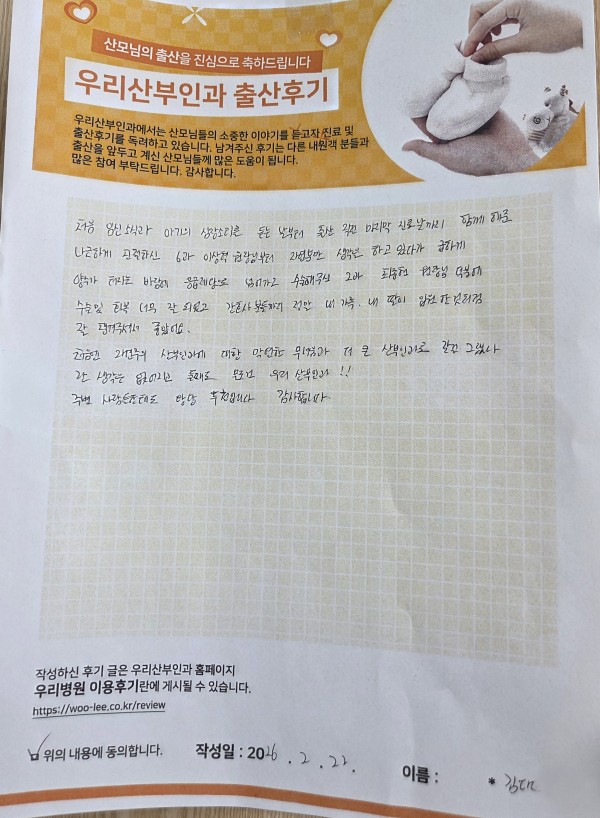 산모님의 출산을 진심으로 축하드립니다
우리산부인과 출산후기
우리산부인과에서는 산모님들의 소중한 이야기를 듣고자 진료 및
출산후기를 독려하고 있습니다. 남겨주신 후기는 다른 내원객 분들과
출산을 앞두고 계신 산모님들께 많은 도움이 됩니다.
많은 참여 부탁드립니다. 감사합니다.
처음 임신소식과 아기의 심장소리를 듣는 날부터 출산 직전 마지막 진료날까지 함께 해준
6과 이상형 원장님부터 자연분만 생각은 하고 있다가 급하게
양수가 터지는 바람에 응급제왕으로 넘어가고 수술해주신 2과 원장님 덕분에
수술및 회복 너무 잘 되었고 간호사분들까지 정말 내 가족, 내 딸이
잘 챙겨주셔서 좋았어요.
산부인과에 대한 막연한 무서움과 더 큰 산부인과로 갈걸 그랬나
생각은 없어지고 둘째도 무조건 우리 산부인과!!
주변 사람들한테도 왕왕 추천입니다 감사합니다
작성하신 후기 글은 우리산부인과 홈페이지
우리병원 이용후기란에 게시될 수 있습니다.
https://woo-lee.co.kr/review
위의 내용에 동의합니다. 작성일 : 2026 . 2 . 22. 이름 : * 김다